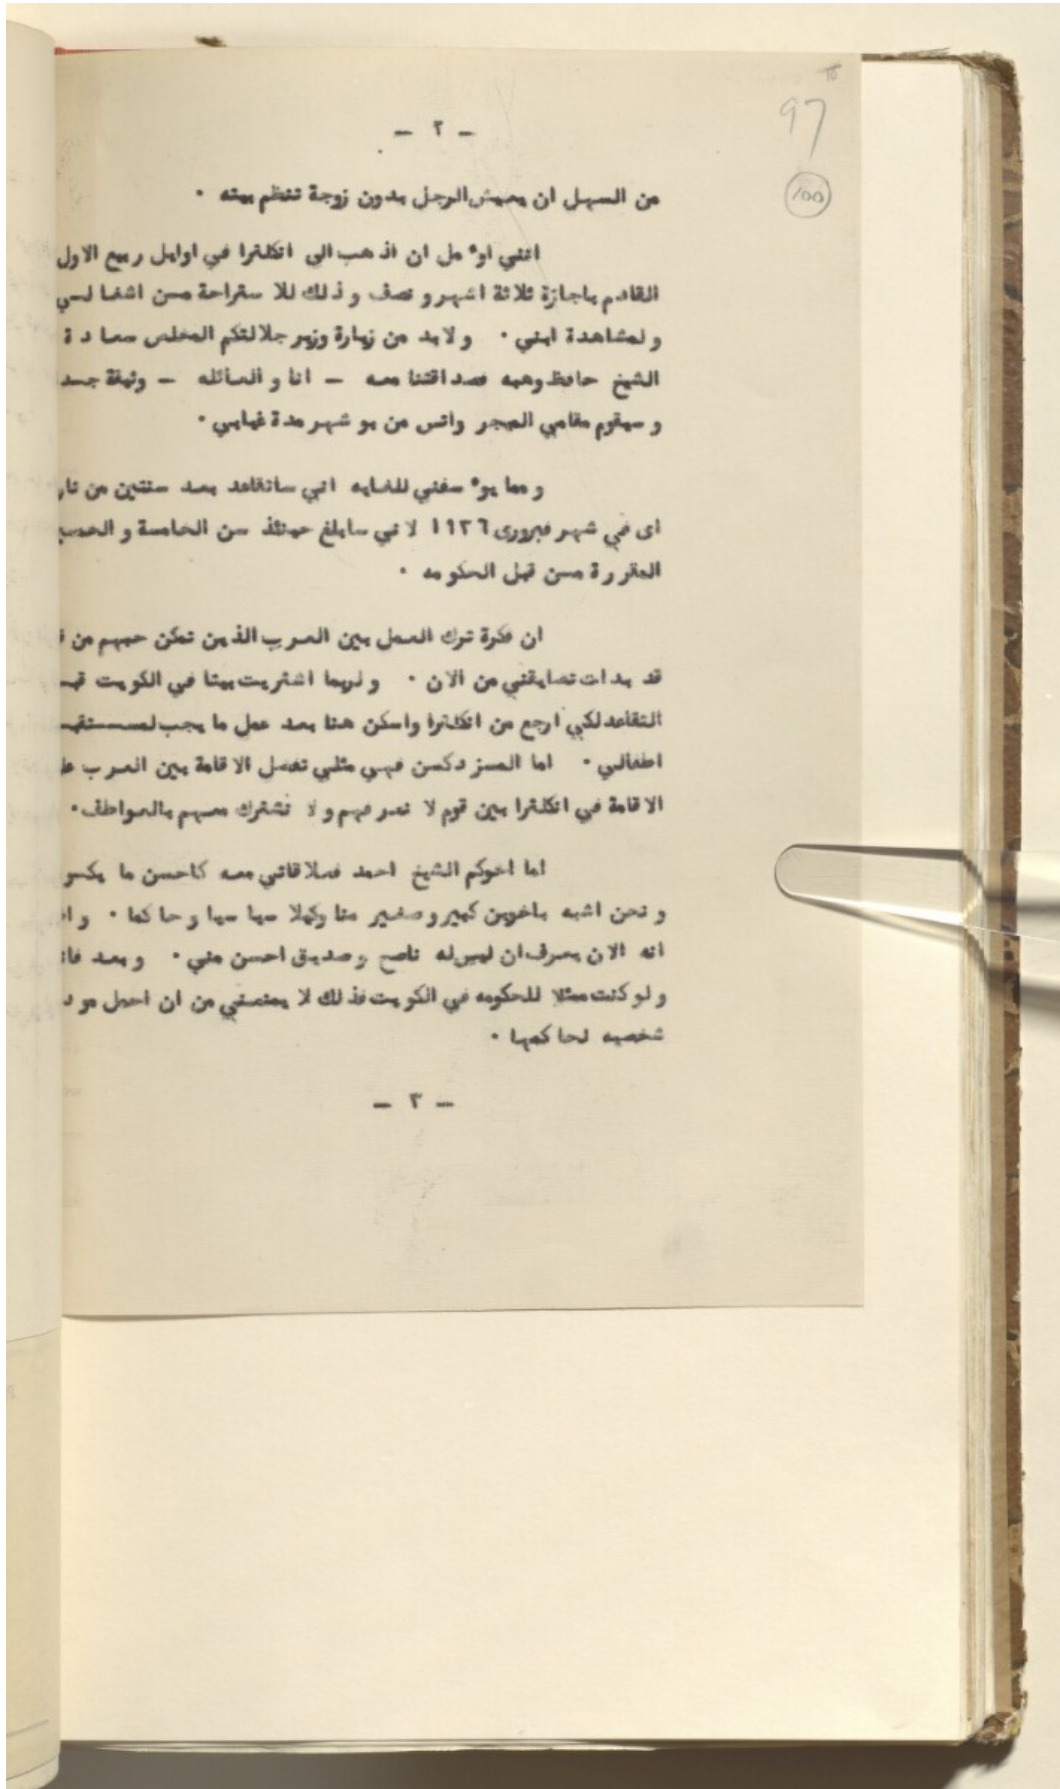 97
100
- ٢ -
من السهل ان يعيش الرجل بدون زوجة تنظم بيته ٠
انني اوٴمل ان اذهب الى انكلترا في اوايل ربيع الاول
القادم باجازة ثلاثة اشهر و نصف و ذلك للاستراحة مسن اشغالسي
و لمشاهدة ابني ٠ و لابد من زيارة وزير جلالتكم المخلص سعادة
الشيخ حافظ وهبه فصداقتنا معه - انا و العائله - وثيقة جسدا
و سيقوم مقامي الميجر واتس من بو شهر مدة غيابي ٠
و مما يوٴسفني للغايه اني ساتقاعد بعد سنتين من
اى في شهر فبرورى ١٩٣٦ لاني سابلغ حينئذ سن الخامسة و
المقررة مسن قبل الحكومه ٠
ان فكرة ترك العمل بين العرب الذين تمكن حبهم من
قد بدات تضايقني من الان ٠ و لربما اشتريت بيتا في الكويت
التقاعد لكي ارجع من انكلترا واسكن هنا بعد عمل ما يجب
اطفالي ٠ اما المسز دكسن فهي مثلي تفضل الاقامة بين العرب
الاقامة في انكلترا بين قوم لا نعرفهم و لا نشترك معهم بالعواطف ٠
اما اخوكم الشيخ احمد فعلاقاتي معه كاحسن ما يكسو
و نحن اشبه باخوين كبير و صغير منا وكيلا سياسيا و حاكما ٠
انه الان يعرف ان ليس له ناصح و صديق احسن مني ٠ و بعد
و لو كنت ممثلا للحكومه في الكويت فذلك لا يمنعني من ان احمل
شخصيه لحاكمها ٠
- ٣ -